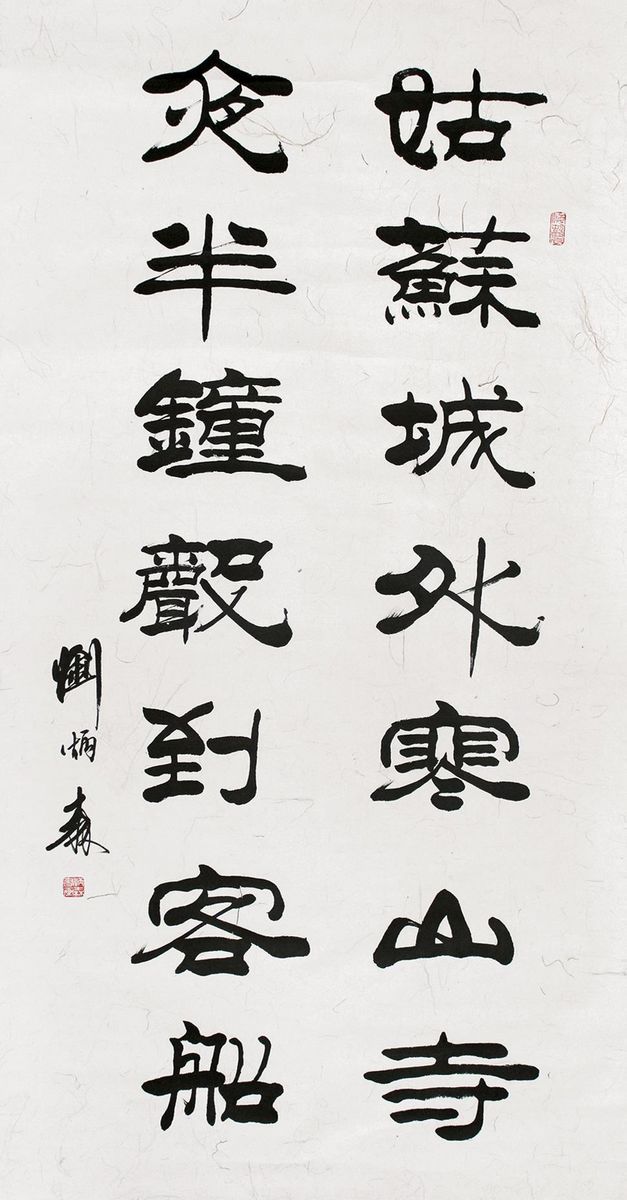 姑蘇城外寒山寺
夜半鐘聲到客船
劉炳森